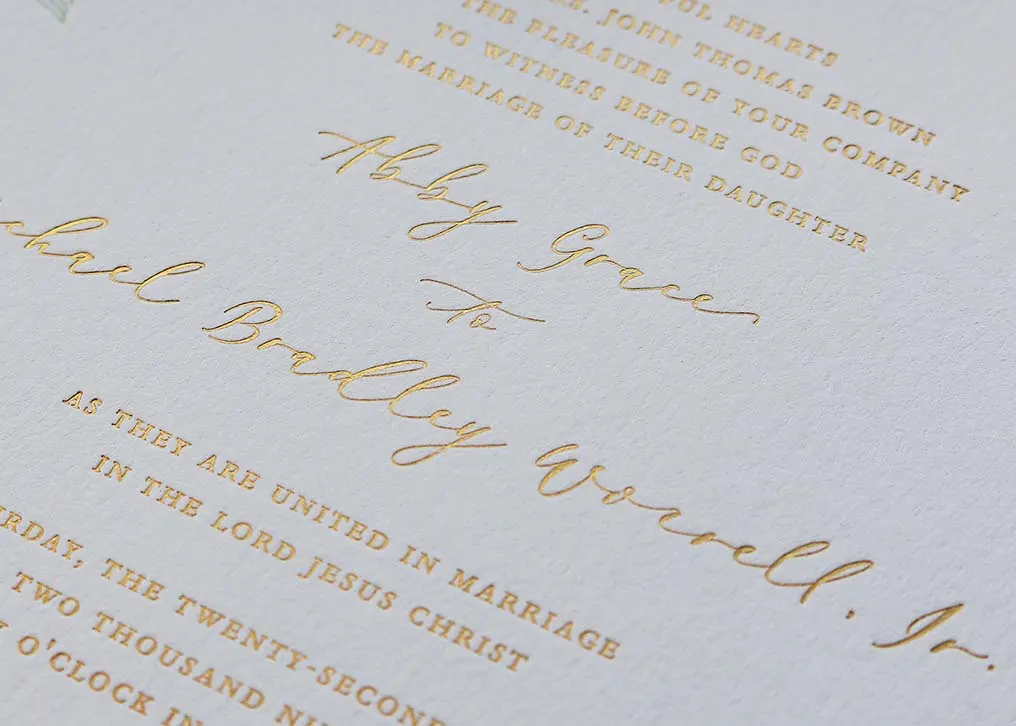 HEARTS
JOHN THOMAS BROWN
THE PLEASURE OF YOUR COMPANY
TO WITNESS BEFORE GOD
THE MARRIAGE OF THEIR DAUGHTER
Abby Grace
To
Bradley Worrell, Jr.
AS THEY ARE UNITED IN MARRIAGE
IN THE LORD JESUS CHRIST
THE TWENTY-SECOND
TWO THOUSAND
O'CLOCK IN